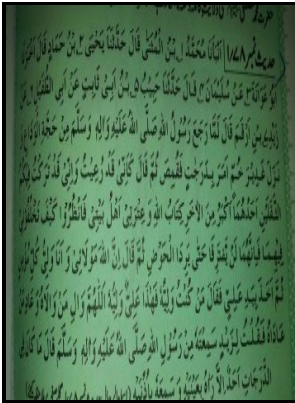 حدیث نمبر ۱/۷۸ اَنْبَأَنَا مُحَمَّدُ بْنُ الْمُثَنّٰی قَالَ حَدَّثَنَا یَحْیَی بْنُ حَمَّادٍ قَالَ
اَبُوْ عَوَانَةَ عَنْ سُلَیْمَانَ قَالَ حَدَّثَنَا حَبِیْبُ بْنُ اَبِیْ ثَابِتٍ عَنْ اَبِی الطُّفَیْلِ عَنْ
زَیْدِ بْنِ اَرْقَمَ قَالَ لَمَّا رَجَعَ رَسُوْلُ اللهِ صَلَّی اللهُ عَلَیْهِ وَاٰلِهٖ وَسَلَّمَ مِنْ حَجَّةِ الْوَدَاعِ
نَزَلَ غَدِیْرَ خُمٍّ اَمَرَ بِدَوْحَاتٍ فَقُمِمْنَ ثُمَّ قَالَ کَاَنِّیْ قَدْ دُعِیْتُ وَاِنِّیْ قَدْ تَرَکْتُ فِیْکُمُ
الثَّقَلَیْنِ اَحَدُهُمَا اَکْبَرُ مِنَ الْاٰخَرِ کِتَابَ اللهِ وَعِتْرَتِیْ اَهْلَ بَیْتِیْ فَانْظُرُوْا کَیْفَ تَخْلُفُوْنِیْ
فِیْهِمَا فَاِنَّهُمَا لَنْ یَتَفَرَّقَا حَتّٰی یَرِدَا الْحَوْضَ ثُمَّ قَالَ اِنَّ اللهَ مَوْلَایَ وَاَنَا وَلِیُّ کُلِّ
ثُمَّ اَخَذَ بِیَدِ عَلِیٍّ فَقَالَ مَنْ کُنْتُ وَلِیُّهٗ فَهٰذَا عَلِیٌّ وَلِیُّهٗ اَللّٰهُمَّ وَالِ مَنْ وَالَاهُ وَعَادِ مَنْ
عَادَاهُ فَقُلْتُ لِزَیْدٍ سَمِعْتَهٗ مِنْ رَسُوْلِ اللهِ صَلَّی اللهُ عَلَیْهِ وَاٰلِهٖ وَسَلَّمَ قَالَ مَا کَانَ فِی
الدَّرَجَاتِ اَحَدٌ اِلَّا رَاٰهُ بِعَیْنَیْهِ وَسَمِعَهٗ بِاُذُنَیْهِ